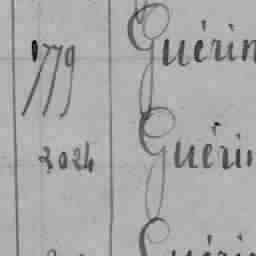 1779 Guérin
2024 Guérin
Guérin